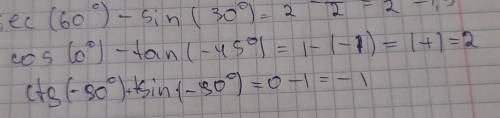 sec(60°) - sin(30°) = 2
cos(0°) - tan(-45°) = 1-(-1) = 1+1=2
ctg(-90°)+sin(-90°)=0-1=-1